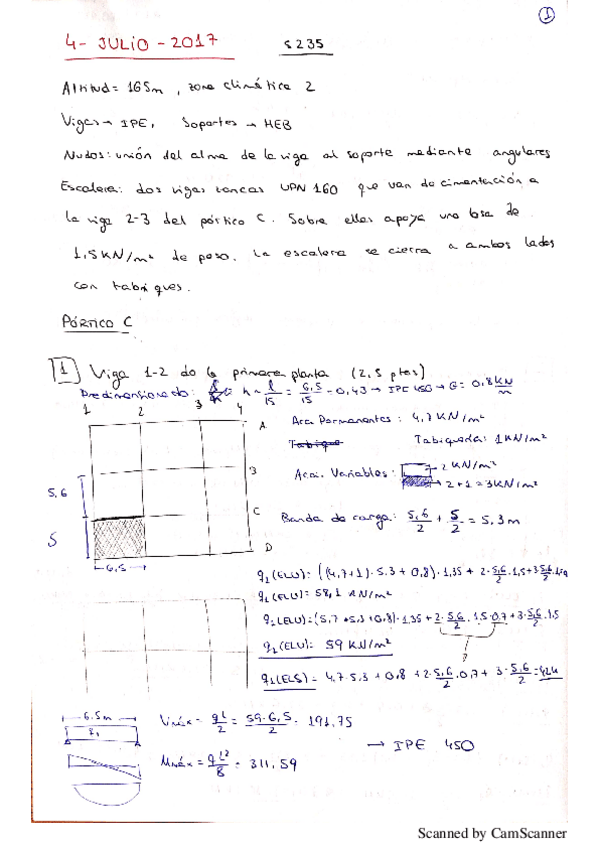 1
4- JULIO - 2017 S235
Altitud = 165m , zona climática 2
Vigas → IPE, Soportes → HEB
Nudos: unión del alma de la viga al soporte mediante angulares
Escalera: dos vigas zancas UPN 160 que van de cimentación a
la viga 2-3 del pórtico C. Sobre ellas apoya una losa de
1,5 KN/m² de peso. La escalera se cierra a ambos lados
con tabiques.
PÓRTICO C
1 Viga 1-2 de la primera planta (2,5 ptos)
Predimensionado: h ~ l/15 = 6,5/15 = 0,43 → IPE 450 → G = 0,8 KN/m
1 2 3 4
A
B
C
D
5,6
5
6,5
Acc. Permanentes : 4,7 KN/m²
Tabique Tabiquería: 1KN/m²
Acc. Variables : 2 KN/m²
2+1 = 3KN/m²
Banda de carga: 5,6/2 + 5/2 = 5,3 m
q1(ELU): ((4,7+1)·5,3 + 0,8)·1,35 + 2·5,6/2·1,5+3
q1(ELU) = 58,1 KN/m²
q2(ELU) = (5,7·5,3+0,8)·1,35+2·5,6/2·1,5·0,7+3·5,6/2·1,5
q2(ELU): 59 KN/m²
?
q1(ELS) = 4,7·5,3 + 0,8 +2·5,6/2·0,7+ 3·5,6/2 =
6.5m
Vmáx = qL/2 = 59·6,5/2 = 191,75
→ IPE 450
Mmáx = qL²/8 = 311,59
Scanned by CamScanner